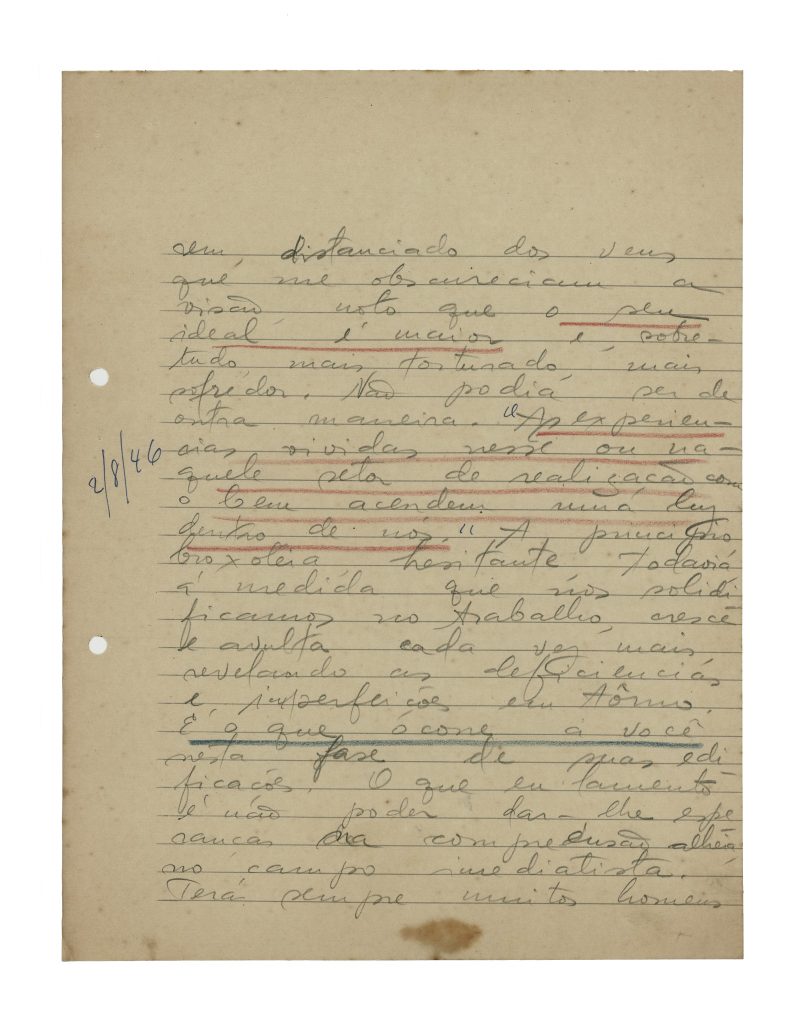 sem, distanciado dos veus
que me obscureciam a
visão, noto que o seu
ideal é maior e, sobre-
tudo mais torturado, mais
sofredor. Não podia ser de
outra maneira. "As experien-
cias vividas nesse ou na-
quele setor de realização com
o bem acendem uma luz
dentro de nós." A principio
broxoleia hesitante todavia,
á medida que nos solidi
ficamos no trabalho, cresce
e avulta cada vez mais
revelando as deficiencias
e imperfeições em tôrno.
É o que ócorre a você
nesta fase de suas edi
ficações. O que eu lamento
é não poder dar-lhe espe
ranças na compreensão alheia,
no campo imediatista.
Terá sempre muitos homens
2/8/46